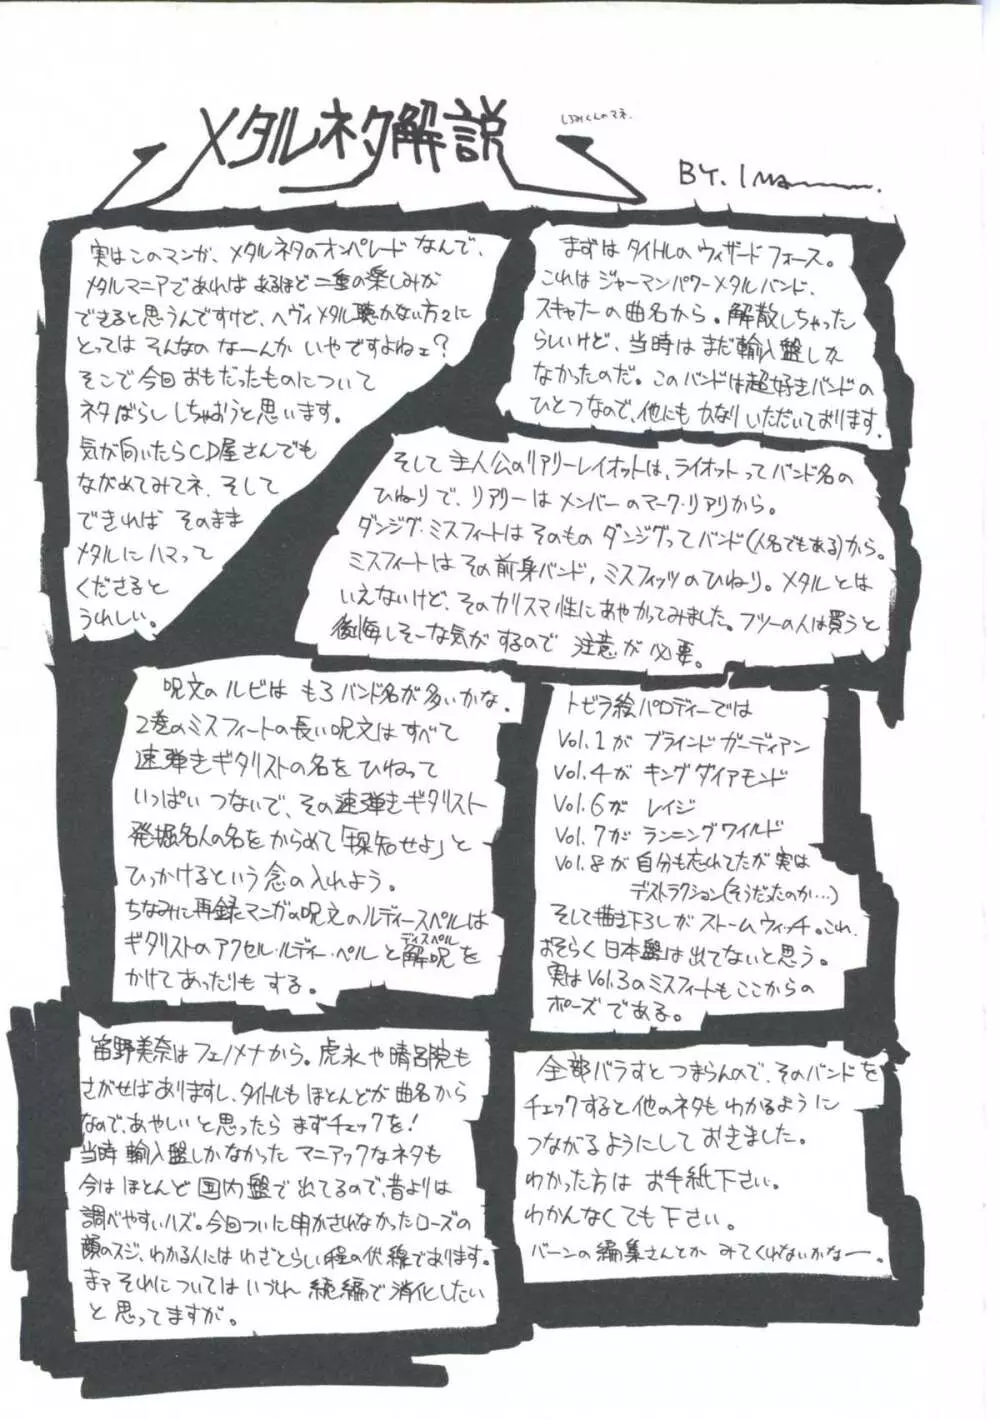 メタルネタ解説
BY.
実はこのマンガ、メタルネタのオンペレードなんで、
メタルマニアであればあるほど二重の楽しみが
できると思うんですけど、ヘヴィメタル聴かない方々に
とってはそんなのなーんかいやですよねェ?
そこで今回おもだったものについて
ネタばらししちゃおうと思います。
気が向いたらCD屋さんでも
ながめてみてネ.そして
できればそのまま
メタルにハマって
くださると
うれしい。
まずはタイトルのウィザードフォース。
これはジャーマンパワーメタルバンド、
スキャナーの曲名から。解散しちゃった
らしいけど、当時はまだ輸入盤しか
なかったのだ。このバンドは超好きバンドの
ひとつなので、他にもかなりいただいております.
そして主人公のリアリーレイオットは、ライオットってバンド名の
ひねりで、リアリーはメンバーのマーク・リアリから。
ダンジグ・ミスフィートはそのものダンジグってバンド(人名でもある)から。
ミスフィートはその前身バンド,ミスフィッツのひねり。メタルとは
いえないけど、そのカリスマ性にあやかってみました。フツーの人は買うと
後悔しそーな気がするので注意が必要。
呪文のルビはもろバンド名が多いかな.
2巻のミスフィートの長い呪文はすべて
速弾きギタリストの名をひねって
いっぱいつないで、その速弾きギタリスト
発掘名人の名をからめて「探知せよ」と
ひっかけるという念の入れよう。
ちなみに再録マンガの呪文のルディースペルは
ギタリストのアクセル・ルディー・ペルと解呪を
ディスペル
かけてあったりもする。
トビラ絵パロディーでは
Vol.1がブラインドガーディアン
Vol.4がキングダイアモンド
Vol.6がレイジ
Vol.7がランニングワイルド
Vol.8が自分も忘れてたが実は
デストラクション(そうだったのか…)
そして描き下ろしがストームウィッチ.これ、
おそらく日本盤は出てないと思う。
実はVol.3のミスフィートもここからの
ポーズである。
笛野美奈はフェノメナから。虎永や晴呂院も
さがせばありますし、タイトルもほとんどが曲名から
なので、あやしいと思ったらまずチェックを!
当時輸入盤しかなかったマニアックなネタも
今はほとんど国内盤で出てるので、昔よりは
調べやすいハズ。今回ついに明かされなかったローズの
顔のスジ、わかる人にはわざとらしい程の伏線であります。
まァそれについてはいづれ続編で消化したい
と思ってますが。
全部バラすとつまらんので、そのバンドを
チェックすると他のネタもわかるように
つながるようにしておきました。
わかった方はお手紙下さい。
わかんなくても下さい。
バーンの編集さんとかみてくれないかなー。